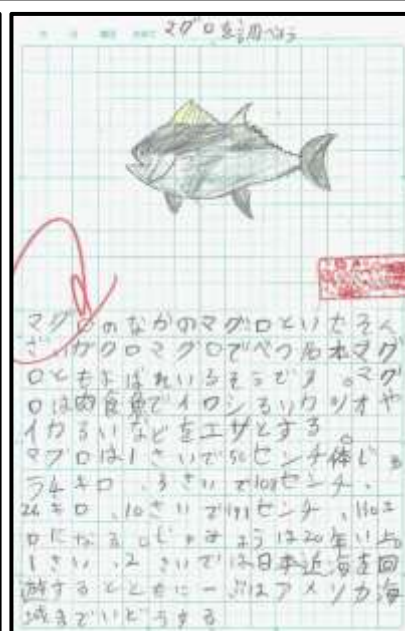 マグロを調べよう
マグロのなかのマグロといたそん
ざいがクロマグロでべつ名本マグ
ロともよばれいるそうです。マグ
ロは肉食魚でイワシるいカツオや
イカるいなどをエサとする。
マグロは1さいで50センチ体じゅ
う4キロ、3さいで108センチ、
26キロ、10さいで191センチ、110キ
ロになる。じゅみょうは20年い上
1さい、2さいでは日本近海を回
游するとともに一ぶはアメリカ海
域までいどうする